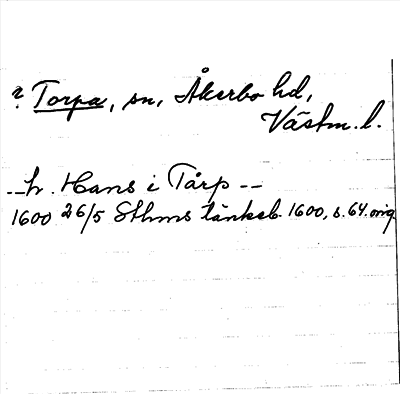 ? Torpa, sn, Åkerbo hd,
Västm. l.
-- hr. Hans i Tårp --
1600 26/5 Sthms tänkeb. 1600, s. 64. orig